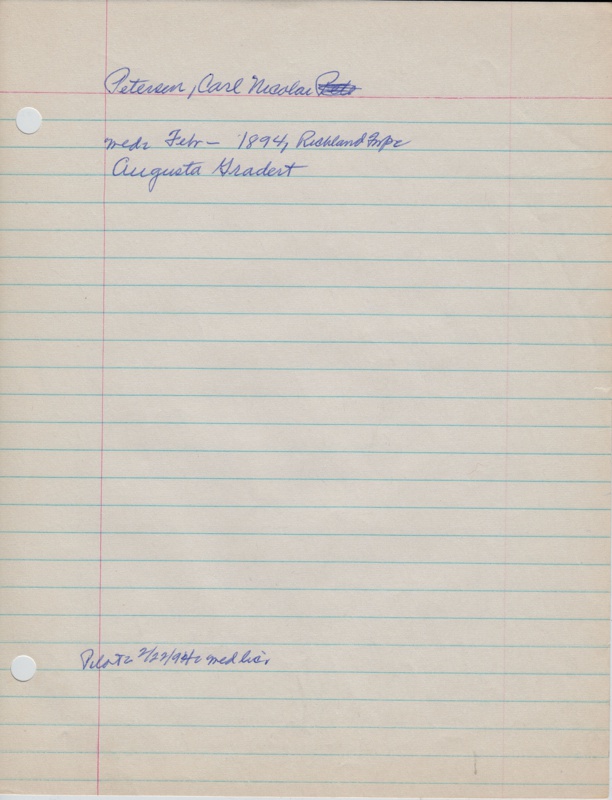 Petersen, Carl Nicolai
med: Febr – 1894, Richland Twp:
Augusta Gradert
Pilot: 2/22/94: med lis: